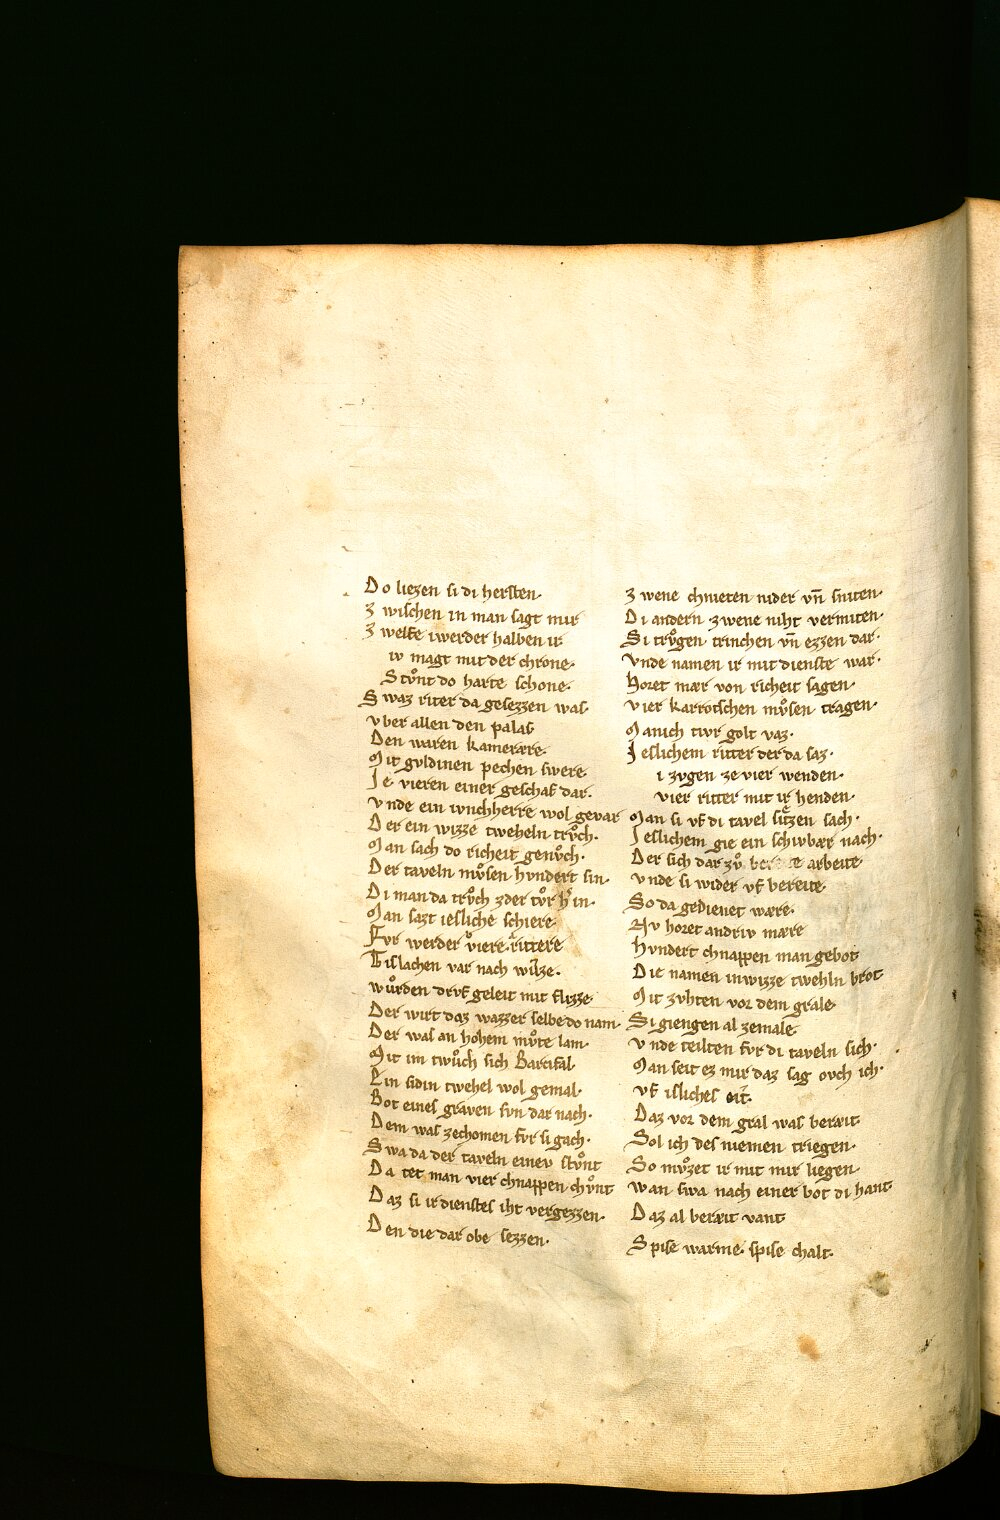 Do liezen si di hersten·
Zwischen in man sagt mir
Zwelfe iwerder halben ir
iv magt mit der chrone·
Stuͦnt do harte schone·
Swaz riter da gesezzen was
vber allen den palas
Den waren kamerære·
Mit gvldinen pechen swere·
Je vieren einer geschaf dar·
vnde ein ivnchherre wol gevar
Der ein wizze tweheln truͦch·
Man sach do richeit genuͦch·
Der taveln muͦsen hvndert sin·
Di man da truͦch zder tuͦr hin·
Man sazt iesliche schiere·
Fvr werder viere rittere
Tislachen var nach wize·
wuͦrden drvf geleit mit flizze
Der wirt daz wazzer selbe do nam·
Der was an hohem muͦte lam·
Mit im twuͦch sich Parcifal·
Ein sidin twehel wol gemal·
Bot eines graven svn dar nach·
Dem was zechomen fvr si gach·
Swa da der taveln einev stuͦnt
Da tet man vier chnappen chuͦnt
Daz si ir dienstes iht vergezzen·
Den die dar obe sezzen·
Zwene chnieten nider vn̄ sniten·
Di andern zwene niht vermiten·
Si truͦgen trinchen vn̄ ezzen dar·
Vnde namen ir mit dienste war·
Horet mær von richeit sagen·
vier karrotschen muͦsen tragen·
Manich tivr golt vaz·
Jeslichem ritter der da saz·
i zvgen ze vier wenden·
vier ritter mit ir henden·
Man si vf di tavel sitzen sach·
Jeslichem gie ein schribær nach·
Der sich dar zuͦ arbeite
vnde si wider vf bereite·
So da gedienet wære·
Nv horet andriv mære
hvndert chnappen man gebot
Die namen in wizze twehln brot
Mit zvhten vor dem grale·
Si giengen al zemale·
vnde teilten fvr di taveln sich·
Man seit ez mir daz sag ovch ich·
vf isliches eit·
Daz vor dem gral was bereit
Sol ich des niemen triegen·
So muͦzet ir mit mir liegen·
wan swa nach einer bot di hant
Daz al bereit vant
Spise warme· spise chalt·